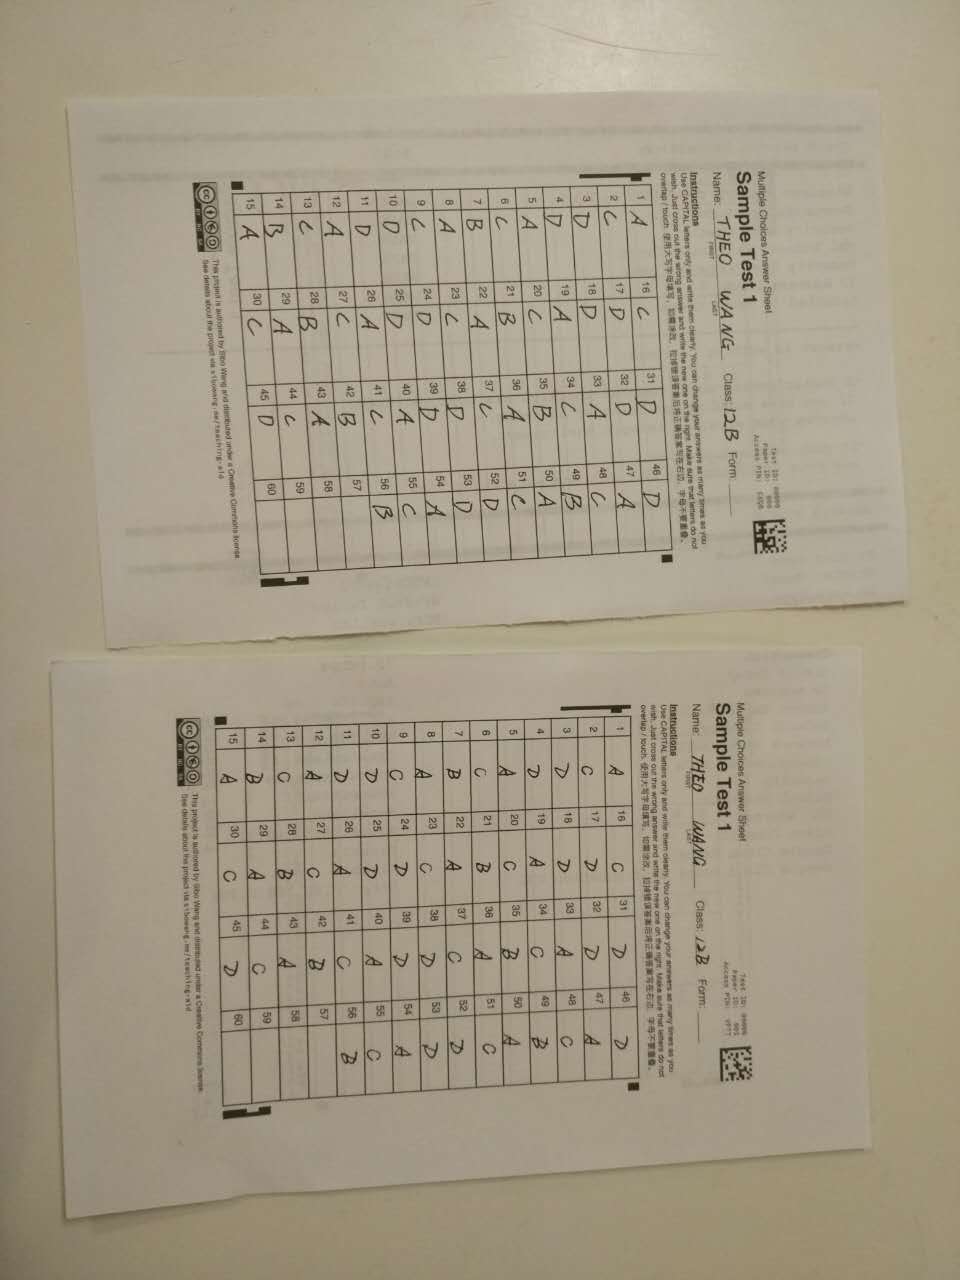 Multiple Choices Answer Sheet
Sample Test 1
Test ID: 00000
Paper ID: 000
Access PIN:
Name: THEO WANG Class: 12B Form:
FIRST LAST
Instructions
Use CAPITAL letters only and write them clearly. You can change your answers as many times as you
wish. Just cross out the wrong answer and write the new one on the right. Make sure that letters do not
overlap / touch. 使用大写字母填写，如需涂改，划掉错误答案后将正确答案写在右边，字母不要重叠。
1 A 16 C 31 D 46 D
2 C 17 D 32 D 47 A
3 D 18 D 33 A 48 C
4 D 19 A 34 C 49 B
5 A 20 C 35 B 50 A
6 C 21 B 36 A 51 C
7 B 22 A 37 C 52 D
8 A 23 C 38 D 53 D
9 C 24 D 39 D 54 A
10 D 25 D 40 A 55 C
11 D 26 A 41 C 56 B
12 A 27 C 42 B 57
13 C 28 B 43 A 58
14 B 29 A 44 C 59
15 A 30 C 45 D 60
cc BY NC SA
This project is authored by Sibo Wang and distributed under a Creative Commons license.
See details about the project via sibowang.me/teaching-aid
Multiple Choices Answer Sheet
Sample Test 1
Test ID: 00000
Paper ID: 001
Access PIN:
Name: THEO WANG Class: 12B Form:
FIRST LAST
Instructions
Use CAPITAL letters only and write them clearly. You can change your answers as many times as you
wish. Just cross out the wrong answer and write the new one on the right. Make sure that letters do not
overlap / touch. 使用大写字母填写，如需涂改，划掉错误答案后将正确答案写在右边，字母不要重叠。
1 A 16 C 31 D 46 D
2 C 17 D 32 D 47 A
3 D 18 D 33 A 48 C
4 D 19 A 34 C 49 B
5 A 20 C 35 B 50 A
6 C 21 B 36 A 51 C
7 B 22 A 37 C 52 D
8 A 23 C 38 D 53 D
9 C 24 D 39 D 54 A
10 D 25 D 40 A 55 C
11 D 26 A 41 C 56 B
12 A 27 C 42 B 57
13 C 28 B 43 A 58
14 B 29 A 44 C 59
15 A 30 C 45 D 60
cc BY NC SA
This project is authored by Sibo Wang and distributed under a Creative Commons license.
See details about the project via sibowang.me/teaching-aid